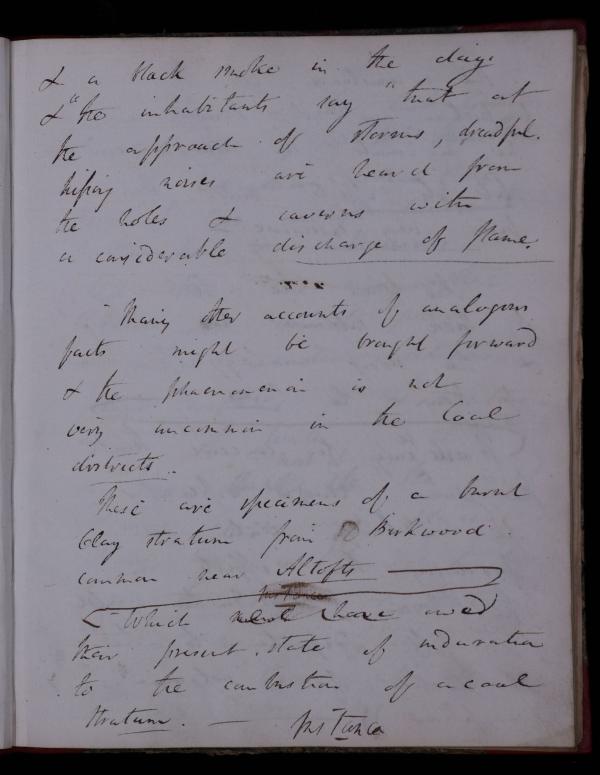 & a black smoke in the day.
& "the inhabitants say "that at
the approach of storms, dreadful.
hissing noises are heard from
the holes & caverns with
a considerable discharge of flame.
Many other accounts of analogous
facts might be brought forward
& the phaenomenon is not
very uncommon in the Coal
districts.
These are specimens of a burnt
Clay stratum from Birkwood
common near Altofts —
Instance
Which must have owed
their present state of induration
to the combustion of a coal
stratum. — Instance